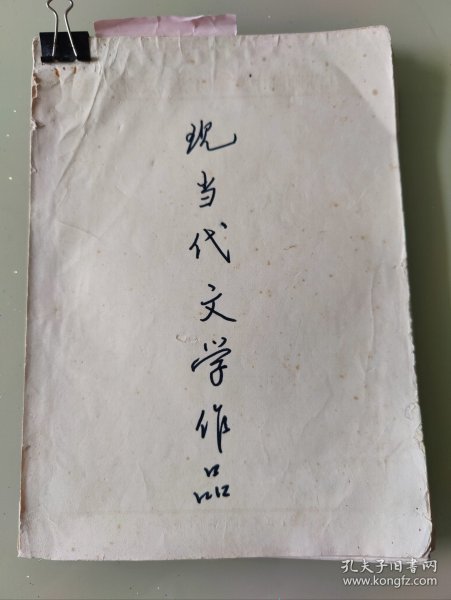 现当代文学作品
孔夫子旧书网
www.kongfz.com